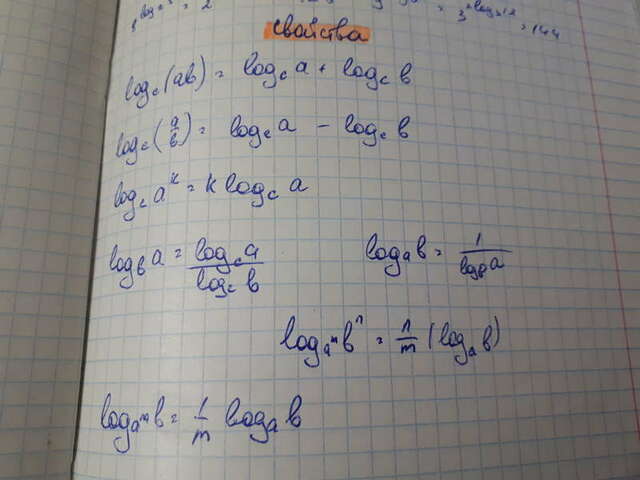 = 2
= 3^{2 log₃12} = 144
свойства
log_c(ab) = log_c a + log_c b
log_c(a/b) = log_c a - log_c b
log_c a^k = k log_c a
log_b a = log_c a / log_c b
log_a b = 1 / log_b a
log_{a^m} b^n = n/m (log_a b)
log_{a^m} b = 1/m log_a b